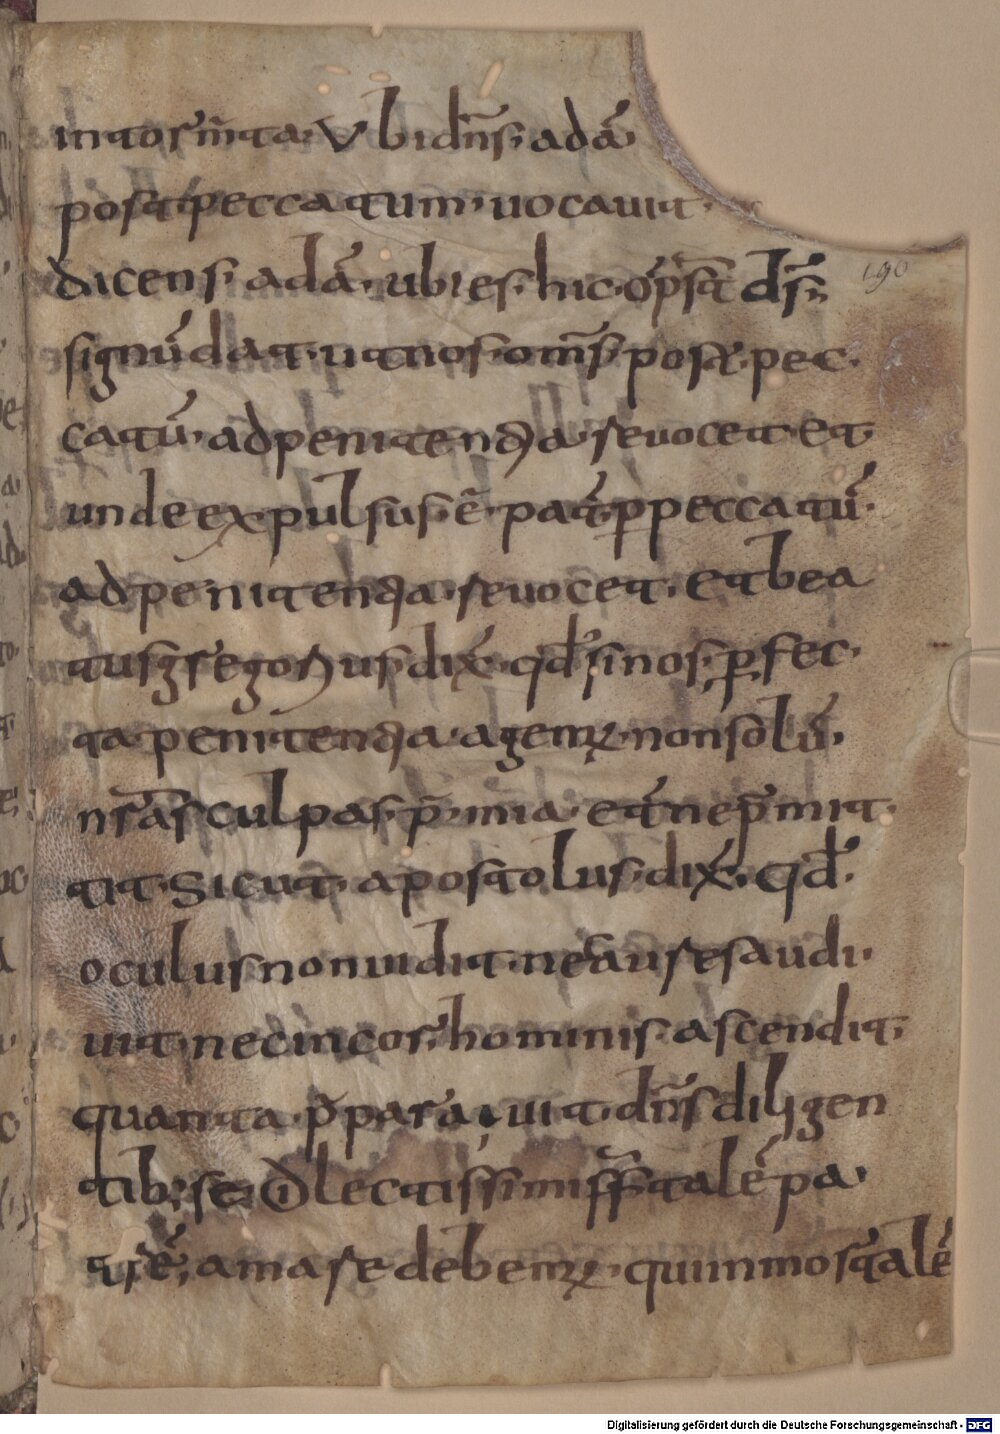 intorm̄ta. Vbi dn̄s. adā.
post peccatum. uocauit.
dicens. adā. ubi es. hic op̄st̄ ds̄.
signū dat. ut nos. om̄s post. pec.
catū. ad penitentia reuocet. Et
unde expulsus. ē. pat̄. p peccatū.
ad penitentia. reuocet. Et bea
tus gregorius. dix̄. qd̄ si nos. perfec.
ta penitentia. agem. non solū.
nr̄as culpas. p̄. mia. et n̄ ep̄ mit
tit. Sicut apostolus. dix̄. Qd̄.
oculus non uidit. nec aures audi.
uit nec in cor. hominis. ascendit.
quanta p̄para, uit. dn̄s diligen
tib; se. Dilectissimi ff̄ talē pa.
trē; amare debem. qui in nos talē
190
Digitalisierung gefördert durch die Deutsche Forschungsgemeinschaft - DFG